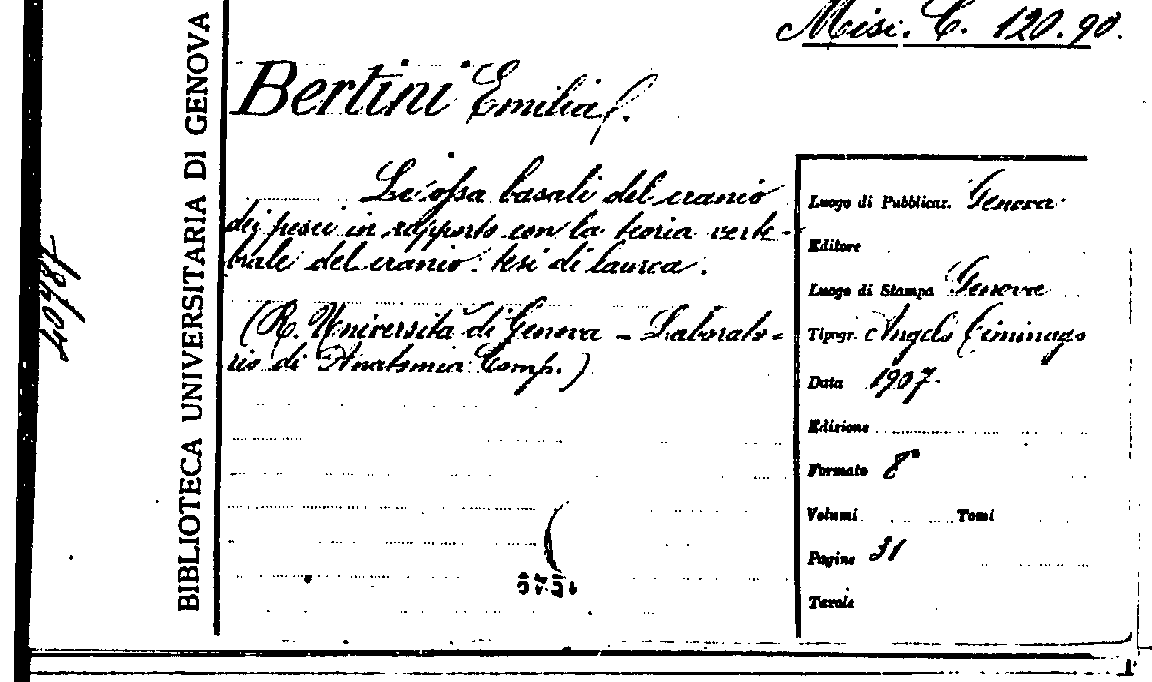 Misc. C. 120.90.
BIBLIOTECA UNIVERSITARIA DI GENOVA
Bertini Emilia f.
Le ossa basali del cranio
dei pesci in rapporto con la teoria verte-
brale del cranio: tesi di laurea.
(R. Università di Genova - Laborato-
rio di Anatomia Comp.)
Luogo di Pubblicaz. Genova
Editore
Luogo di Stampa Genova
Tipogr. Angelo Ciminago
Data 1907.
Edizione
Formato 8°
Volumi Tomi
Pagine 31
Tavole